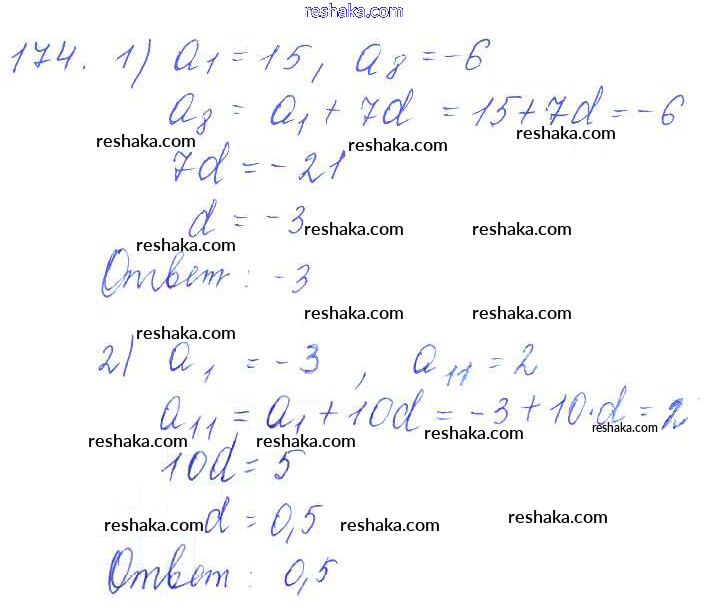 reshaka.com
174. 1) a₁ = 15, a₈ = -6
a₈ = a₁ + 7d = 15 + 7d = -6
reshaka.com reshaka.com reshaka.com
7d = -21
d = -3
reshaka.com reshaka.com reshaka.com
Ответ: -3
reshaka.com reshaka.com reshaka.com
2) a₁ = -3, a₁₁ = 2
a₁₁ = a₁ + 10d = -3 + 10·d = 2
reshaka.com reshaka.com reshaka.com
10d = 5
d = 0,5
reshaka.com reshaka.com reshaka.com
Ответ: 0,5